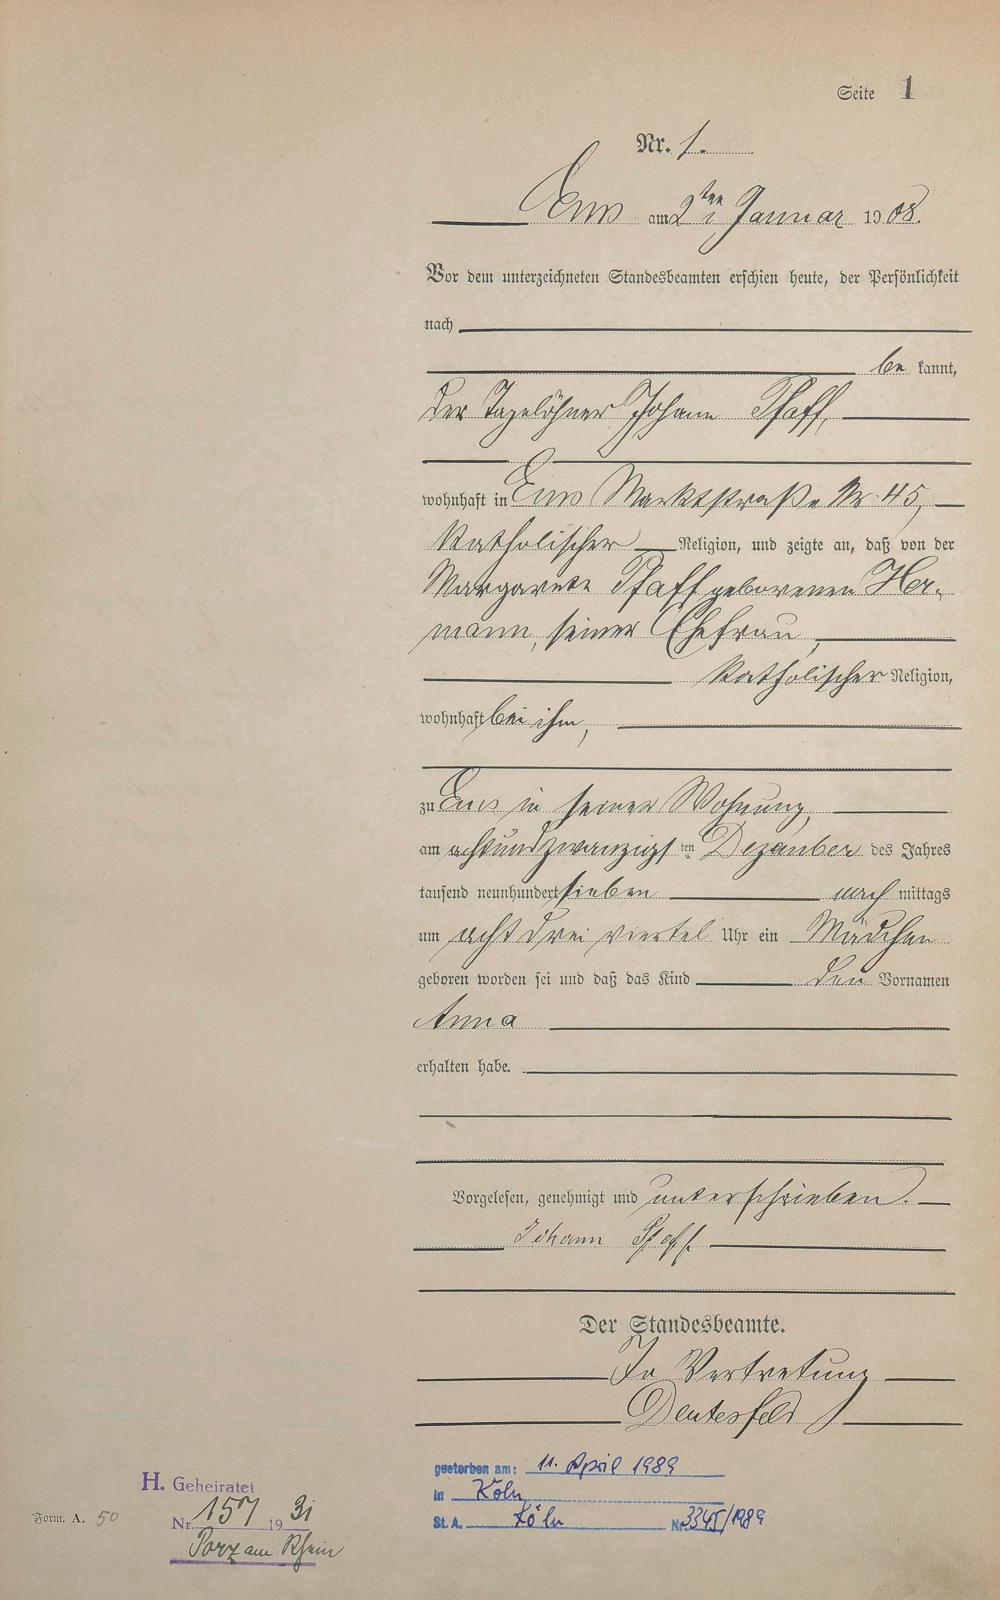 Seite 1
Nr. 1.
Ems am 2ten Januar 1908.
Vor dem unterzeichneten Standesbeamten erschien heute, der Persönlichkeit
nach
be kannt,
der Tagelöhner Johann Pfaff,
wohnhaft in Ems Marktstraße Nr. 45,
katholischer Religion, und zeigte an, daß von der
Margarete Pfaff geborenen
mann, seiner Ehefrau,
katholischer Religion,
wohnhaft bei ihm,
zu Ems in seiner Wohnung,
am achtundzwanzigsten Dezember des Jahres
tausend neunhundert sieben nach mittags
um acht drei viertel Uhr ein Mädchen
geboren worden sei und daß das Kind den Vornamen
Anna
erhalten habe.
Vorgelesen, genehmigt und unterschrieben.
Johann Pfaff
Der Standesbeamte.
In Vertretung
gestorben am: 11. April 1989
in Köln
St. A. Köln Nr. /1989
H. Geheiratet
Nr. 157 1931
Porz am Rhein
Form. A. 50